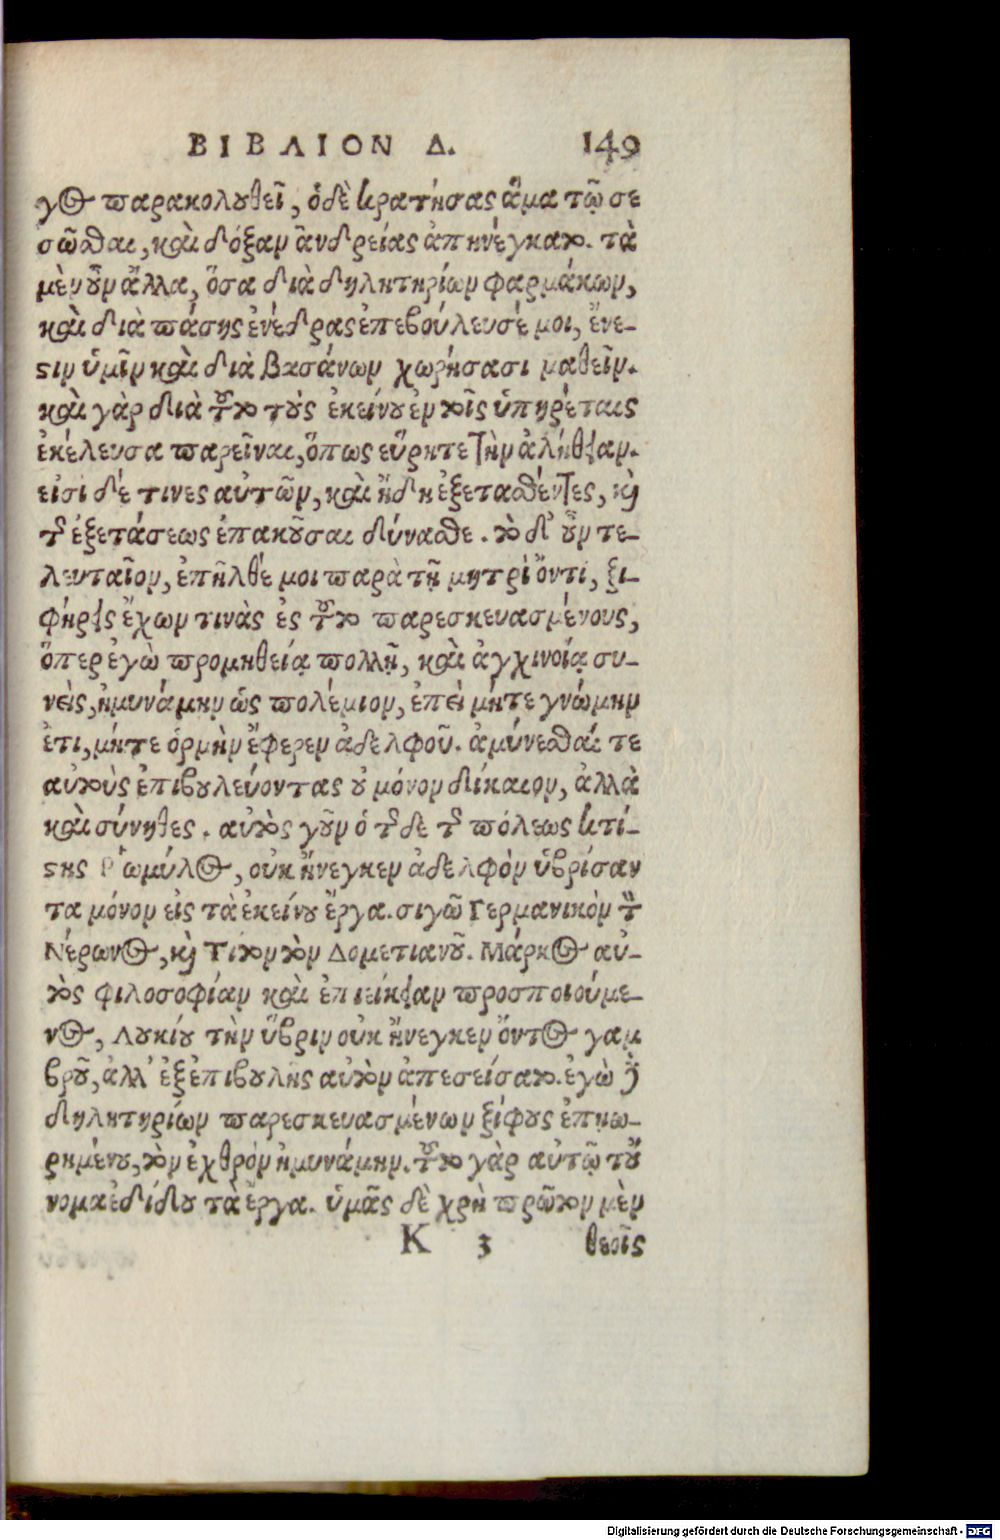 ΒΙΒΛΙΟΝ Δ. 149
γος παρακολουθεῖ, ὁ δὲ κρατήσας ἅμα τῷ σε
σῶσθαι, καὶ δόξαν ἀνδρείας ἀπηνέγκατο. τὰ
μὲν οὖν ἄλλα, ὅσα διὰ δηλητηρίων φαρμάκων,
καὶ διὰ πάσης ἐνέδρας ἐπεβούλευσέ μοι, ἔνε-
στιν ὑμῖν καὶ διὰ βασάνων χωρήσασι μαθεῖν.
καὶ γὰρ διὰ τοῦτο τοὺς ἐκείνου ἐν τοῖς ὑπηρέταις
ἐκέλευσα παρεῖναι, ὅπως εὕρητε τὴν ἀλήθειαν.
εἰσὶ δέ τινες αὐτῶν, καὶ ἤδη ἐξετασθέντες, καὶ
τῆς ἐξετάσεως ἐπακοῦσαι δύνασθε. τὸ δ' οὖν τε-
λευταῖον, ἐπῆλθέ μοι παρὰ τῇ μητρὶ ὄντι, ξι-
φήρεις ἔχων τινὰς ἐς τοῦτο παρεσκευασμένους,
ὅπερ ἐγὼ προμηθείᾳ πολλῇ, καὶ ἀγχινοίᾳ συ-
νεὶς, ἠμυνάμην ὡς πολέμιον, ἐπεὶ μήτε γνώμην
ἔτι, μήτε ὁρμὴν ἔφερεν ἀδελφοῦ. ἀμύνεσθαί τε
αὐτοὺς ἐπιβουλεύοντας οὐ μόνον δίκαιον, ἀλλὰ
καὶ σύνηθες. αὐτὸς γοῦν ὁ τῆσδε τῆς πόλεως κτί-
στης Ῥωμύλος, οὐκ ἤνεγκεν ἀδελφὸν ὑβρίσαν
τα μόνον εἰς τὰ ἐκείνου ἔργα. σιγῶ Γερμανικὸν τοῦ
Νέρωνος, καὶ Τίτον τὸν Δομετιανοῦ. Μάρκος αὐ-
τὸς φιλοσοφίαν καὶ ἐπιείκειαν προσποιούμε-
νος, Λουκίου τὴν ὕβριν οὐκ ἤνεγκεν ὄντος γαμ
βροῦ, ἀλλ' ἐξ ἐπιβουλῆς αὐτὸν ἀπεσείσατο. ἐγὼ δὲ
δηλητηρίων παρεσκευασμένων ξίφους ἐπῃω-
ρημένου, τὸν ἐχθρὸν ἠμυνάμην. τοῦτο γὰρ αὐτῷ τοὔ
νομα ἐδίδου τὰ ἔργα. ὑμᾶς δὲ χρὴ πρῶτον μὲν
K 3 θεοῖς
Digitalisierung gefördert durch die Deutsche Forschungsgemeinschaft - DFG